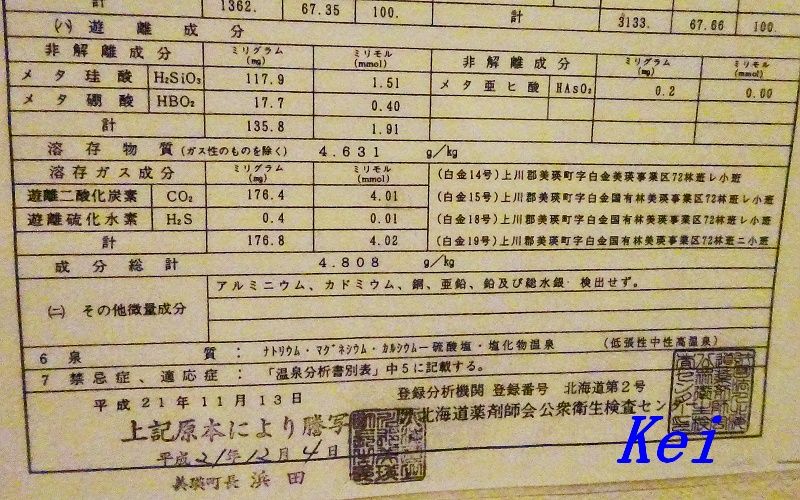 計 1362. 67.35 100. 計 3133. 67.66 100.
(ハ) 遊離成分
非解離成分 ミリグラム(mg) ミリモル(mmol) 非解離成分 ミリグラム(mg) ミリモル(mmol)
メタ珪酸 H₂SiO₃ 117.9 1.51 メタ亜ヒ酸 HAsO₂ 0.2 0.00
メタ硼酸 HBO₂ 17.7 0.40
計 135.8 1.91
溶存物質(ガス性のものを除く) 4.631 g/kg
溶存ガス成分 ミリグラム(mg) ミリモル(mmol) (白金14号)上川郡美瑛町字白金美瑛事業区72林班レ小班
遊離二酸化炭素 CO₂ 176.4 4.01 (白金15号)上川郡美瑛町字白金国有林美瑛事業区72林班レ小班
遊離硫化水素 H₂S 0.4 0.01 (白金18号)上川郡美瑛町字白金国有林美瑛事業区72林班レ小班
計 176.8 4.02 (白金19号)上川郡美瑛町字白金国有林美瑛事業区72林班ニ小班
成分総計 4.808 g/kg
(ニ) その他微量成分 アルミニウム、カドミウム、銅、亜鉛、鉛及び総水銀 検出せず。
6 泉質: ナトリウム・マグネシウム・カルシウムー硫酸塩・塩化物温泉 (低張性中性高温泉)
7 禁忌症、適応症: 「温泉分析書別表」中5に記載する。
平成21年11月13日 登録分析機関 登録番号 北海道第2号
北海道薬剤師会公衆衛生検査セン
上記原本により謄写
平成21年12月4日
美瑛町長 浜田
Kei